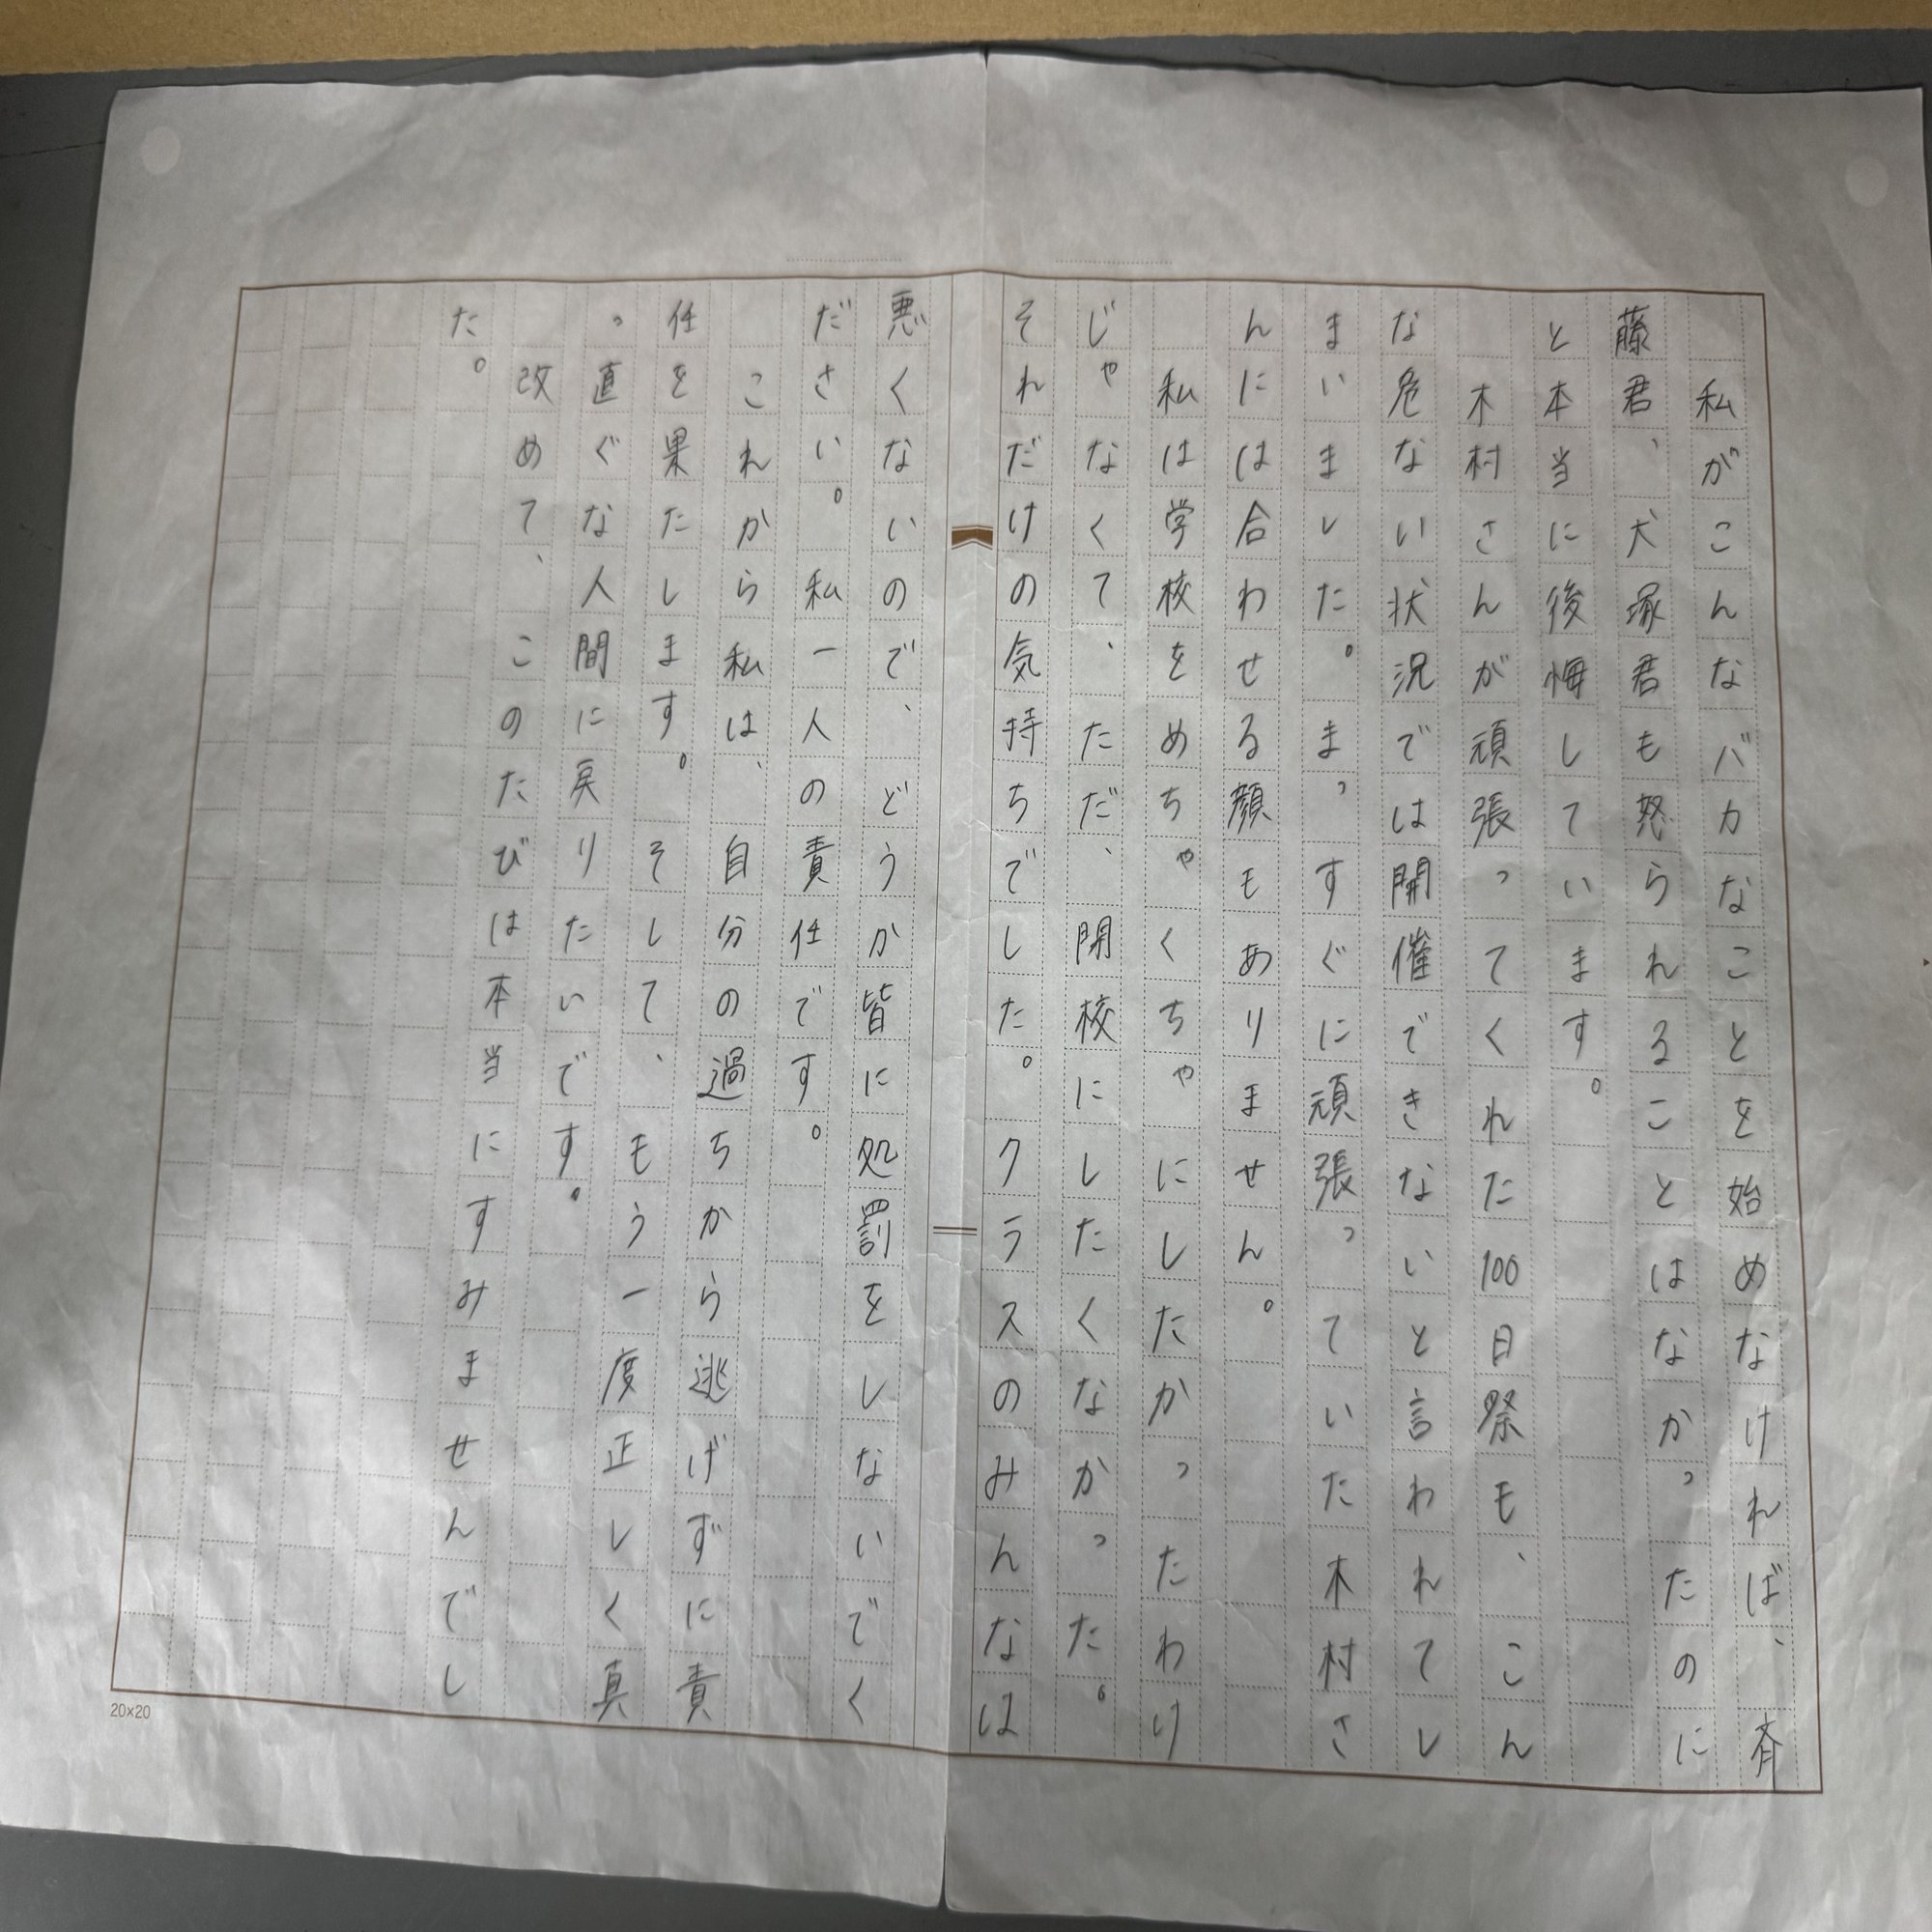 私がこんなバカなことを始めなければ、斉
藤君、犬塚君も怒られることはなかったのに
と本当に後悔しています。
木村さんが頑張ってくれた100日祭も、こん
な危ない状況では開催できないと言われてし
まいました。まっすぐに頑張っていた木村さ
んには合わせる顔もありません。
私は学校をめちゃくちゃにしたかったわけ
じゃなくて、ただ、閉校にしたくなかった。
それだけの気持ちでした。クラスのみんなは
悪くないので、どうか皆に処罰をしないでく
ださい。私一人の責任です。
これから私は、自分の過ちから逃げずに責
任を果たします。そして、もう一度正しく真
っ直ぐな人間に戻りたいです。
改めて、このたびは本当にすみませんでし
た。
20×20